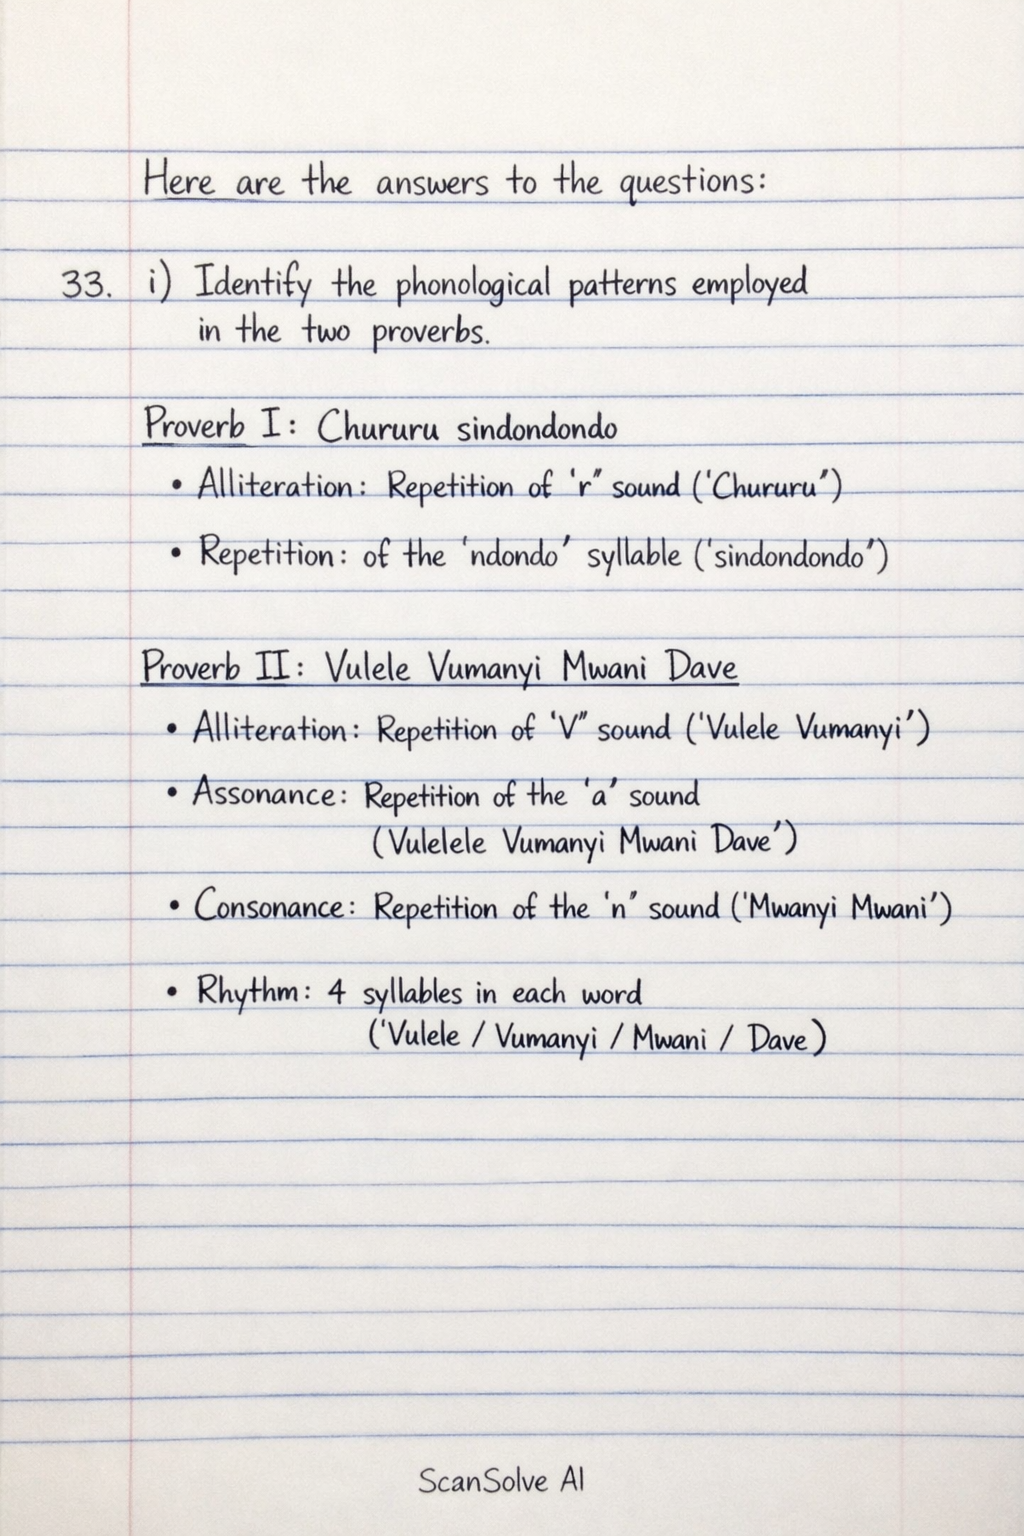 Here are the answers to the questions:
33. i) Identify the phonological patterns employed
in the two proverbs.
Proverb I: Chururu sindondondo
• Alliteration: Repetition of 'r" sound ('Chururu")
• Repetition: of the 'ndondo' syllable ('sindondondo")
Proverb II: Vulele Vumanyi Mwani Dave
• Alliteration: Repetition of 'V" sound ('Vulele Vumanyi')
• Assonance: Repetition of the 'a' sound
(Vulelele Vumanyi Mwani Dave')
• Consonance: Repetition of the 'n" sound ('Mwanyi Mwani')
• Rhythm: 4 syllables in each word
('Vulele / Vumanyi / Mwani / Dave)
ScanSolve AI